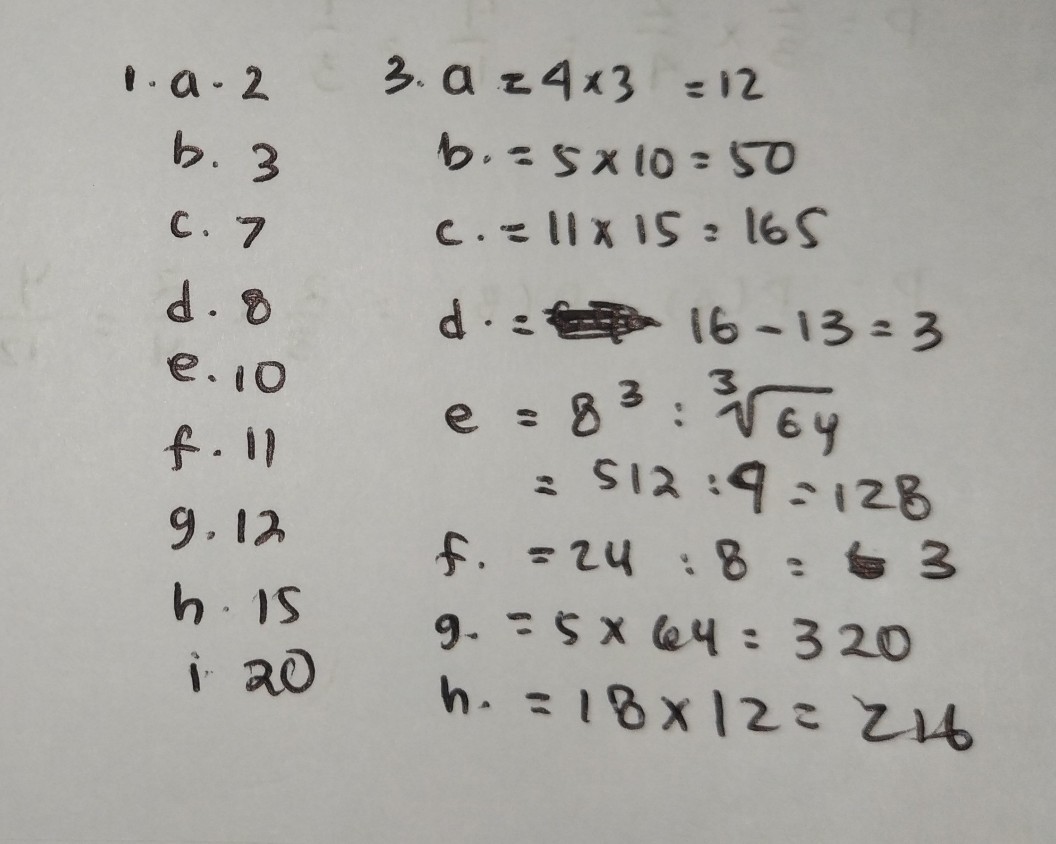 1. a - 2
b. 3
c. 7
d. 8
e. 10
f. 11
g. 12
h. 15
i. 20
3. a = 4 x 3 = 12
b. = 5 x 10 = 50
c. = 11 x 15 = 165
d. = 16 - 13 = 3
e = 8³ : ³√64
= 512 : 4 = 128
f. = 24 : 8 = 3
g. = 5 x 64 = 320
h. = 18 x 12 = 216